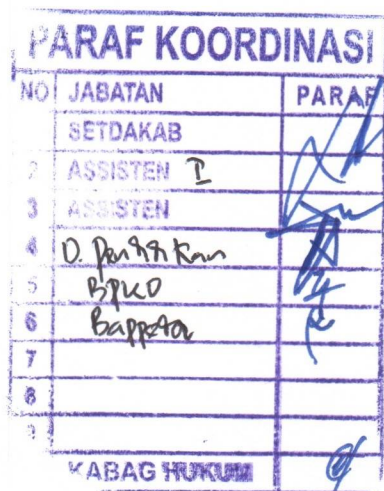 PARAF KOORDINASI
NO JABATAN PARAF
SETDAKAB
2 ASSISTEN I
3 ASSISTEN
4 D. Pendidikan
5 BPKD
6 Bappeda
7
8
9
KABAG HUKUM